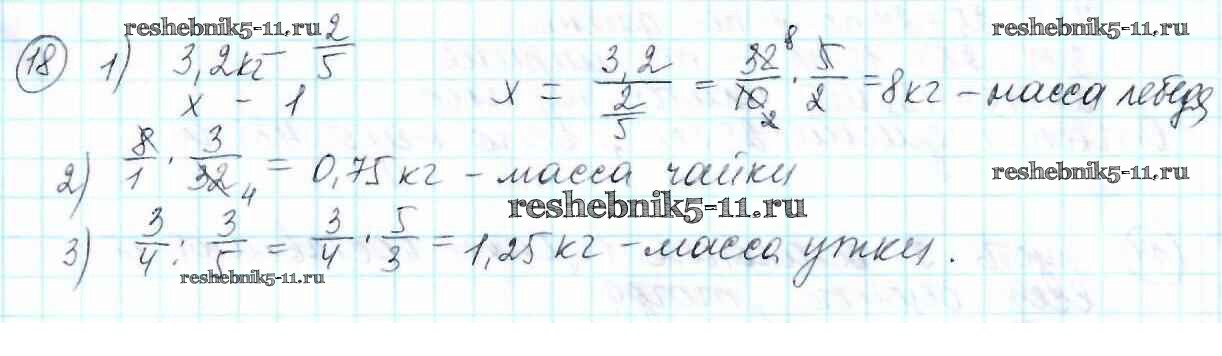 reshebnik5-11.ru
18 1) 3,2кг - 2/5
x - 1
x = 3,2 / (2/5) = 32/10 · 5/2 = 8кг - масса лебедя
8 2
2) 8/1 · 3/32 = 0,75кг - масса чайки
4
reshebnik5-11.ru
reshebnik5-11.ru
3) 3/4 : 3/5 = 3/4 · 5/3 = 1,25кг - масса утки.
reshebnik5-11.ru